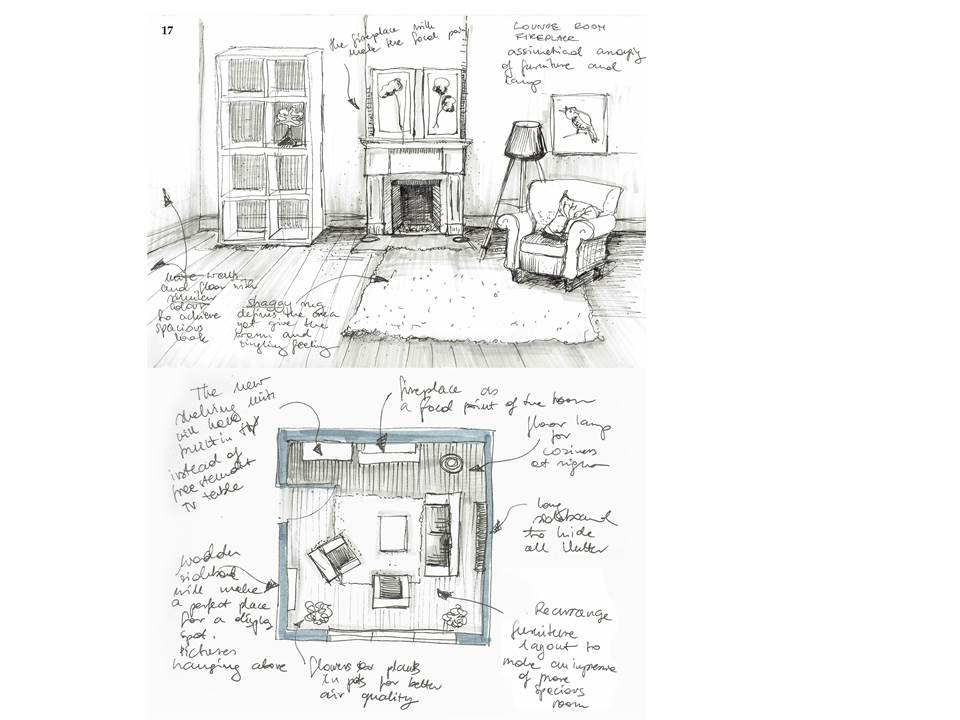 17
the fireplace will
make the focal
LOUNGE ROOM
FIREPLACE
of furniture and
lamp
and floor with
similar
colour
to achieve
spacious
look
shaggy rug
defines the area
yet give the
warm and
feeling
The new
shelving unit
will have
built in
instead of
TV table
fireplace as
a focal point of the room
floor lamp
for
cosiness
at
long
to hide
all clutter
Wooden
will make
a perfect place
for a display
spot.
hanging above
flowers plants
in pots for better
air quality
Rearrange
furniture
layout to
make an
of more
spacious
room